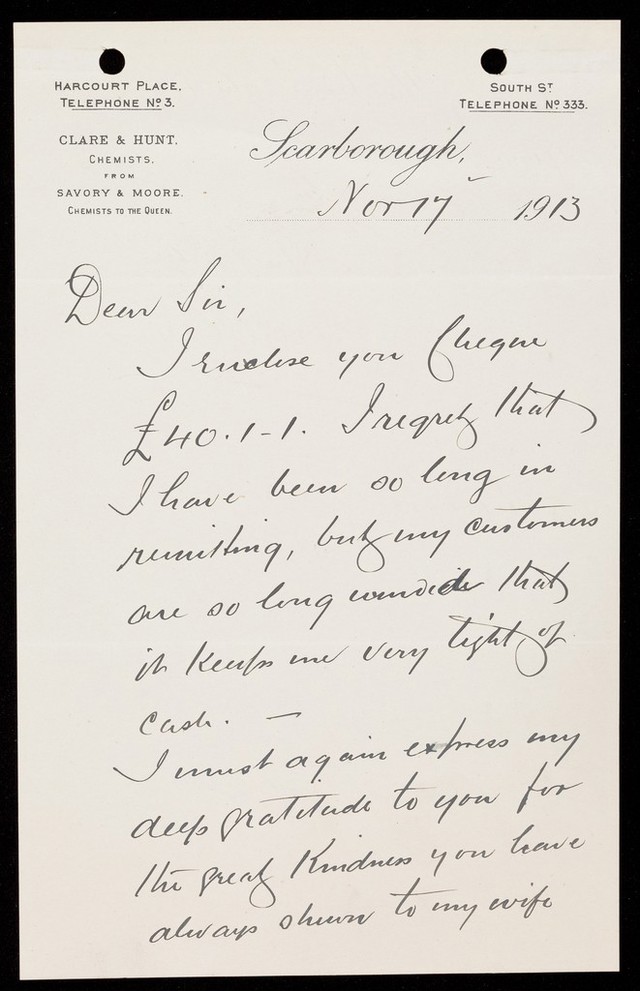 HARCOURT PLACE.
TELEPHONE Nº 3.
SOUTH ST
TELEPHONE Nº 333.
CLARE & HUNT.
CHEMISTS.
FROM
SAVORY & MOORE.
CHEMISTS TO THE QUEEN.
Scarborough,
Nov 17 1913
Dear Sir,
I enclose you Cheque
£40.1-1. I regret that
I have been so long in
remitting, but my customers
are so long winded that
it keeps me very tight of
cash. —
I must again express my
deep gratitude to you for
the great Kindness you have
always shewn to my wife